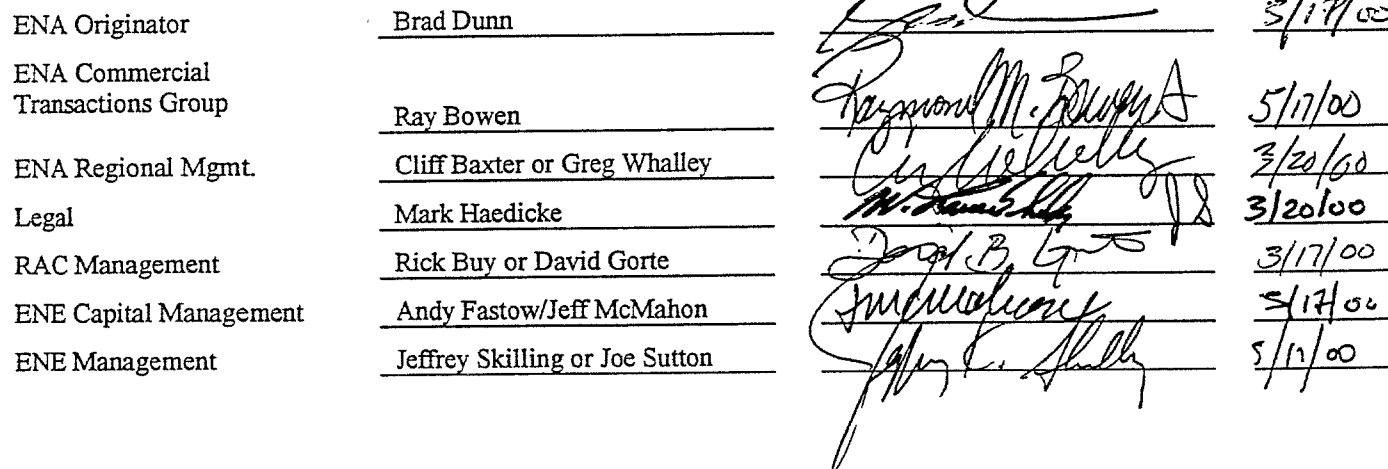 ENA Originator Brad Dunn
ENA Commercial
Transactions Group Ray Bowen Raymond M. Bowen Jr 5/17/00
ENA Regional Mgmt. Cliff Baxter or Greg Whalley 3/20/00
Legal Mark Haedicke 3/20/00
RAC Management Rick Buy or David Gorte 3/17/00
ENE Capital Management Andy Fastow/Jeff McMahon
ENE Management Jeffrey Skilling or Joe Sutton